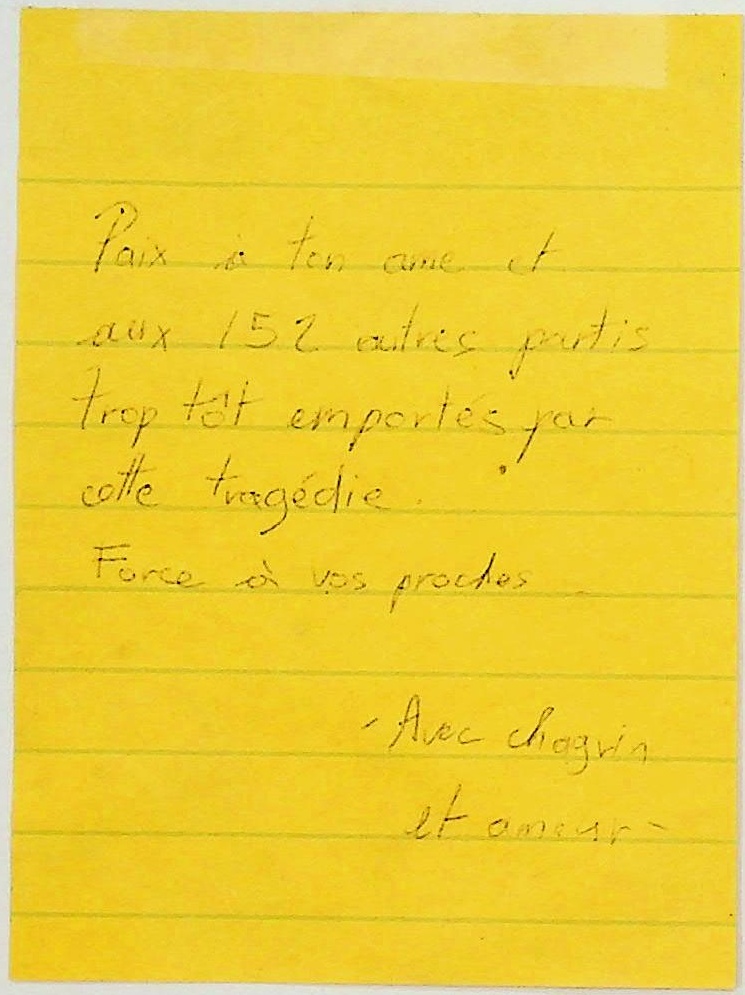 Paix à ton ame et
aux 152 autres partis
trop tôt emportés par
cette tragédie.
Force à vos proches
- Avec chagrin
et amour -